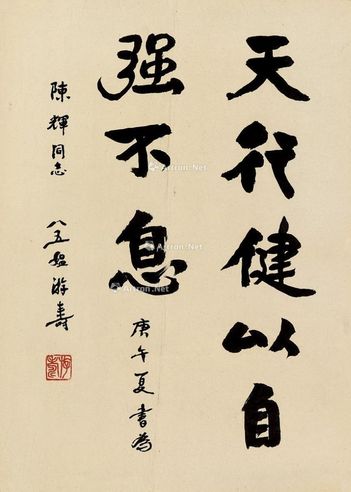 天行健以自
強不息
庚午夏書為
陳輝同志
八五媪游壽
Artron.Net
Artron.Net
Artron.Net
Artron.Net